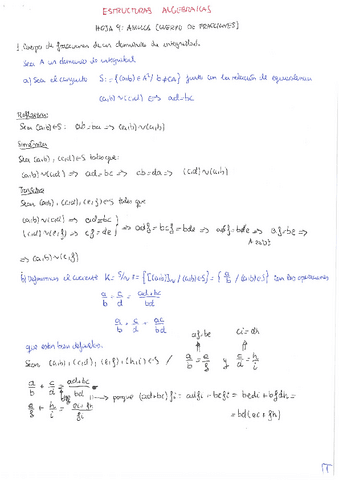 ESTRUCTURAS ALGEBRAICAS
HOJA 4: ANILLOS (CUERPO DE FRACCIONES)
1. Cuerpo de fracciones de un dominio de integridad.
Sea A un dominio de integridad
a) Sea el conjunto S := {(a,b) ∈ A² / b ≠ 0} junto con la relación de equivalencia
(a,b) ~ (c,d) ⟺ ad = bc
Reflexiva:
Sea (a,b) ∈ S: ab = ba ⟹ (a,b) ~ (a,b)
Simétrica
Sea (a,b), (c,d) ∈ S tales que:
(a,b) ~ (c,d) ⟹ ad = bc ⟹ cb = da ⟹ (c,d) ~ (a,b)
Transitiva
Sean (a,b), (c,d), (e,f) ∈ S tales que
(a,b) ~ (c,d) ⟹ ad = bc
(c,d) ~ (e,f) ⟹ cf = de } ⟹ adf = bcf = bde ⟹ adf = bde ⟹ af = be ⟹
⟹ (a,b) ~ (e,f)
b) Definimos el cociente K = S/~ = {[(a,b)]~ / (a,b) ∈ S} = { a/b / (a,b) ∈ S } con las operaciones
a/b + c/d = ad+bc/bd
a/b · c/d = ac/bd
que están bien definidas.
af = be ci = dh
Sean (a,b), (c,d), (e,f), (h,i) ∈ S / a/b = e/f y c/d = h/i
a/b + c/d = ad+bc/bd
e/f + h/i = ei+fh/fi
porque (ad+bc)fi = adfi + bcfi = bedi + bfdh =
= bd(ei + fh)